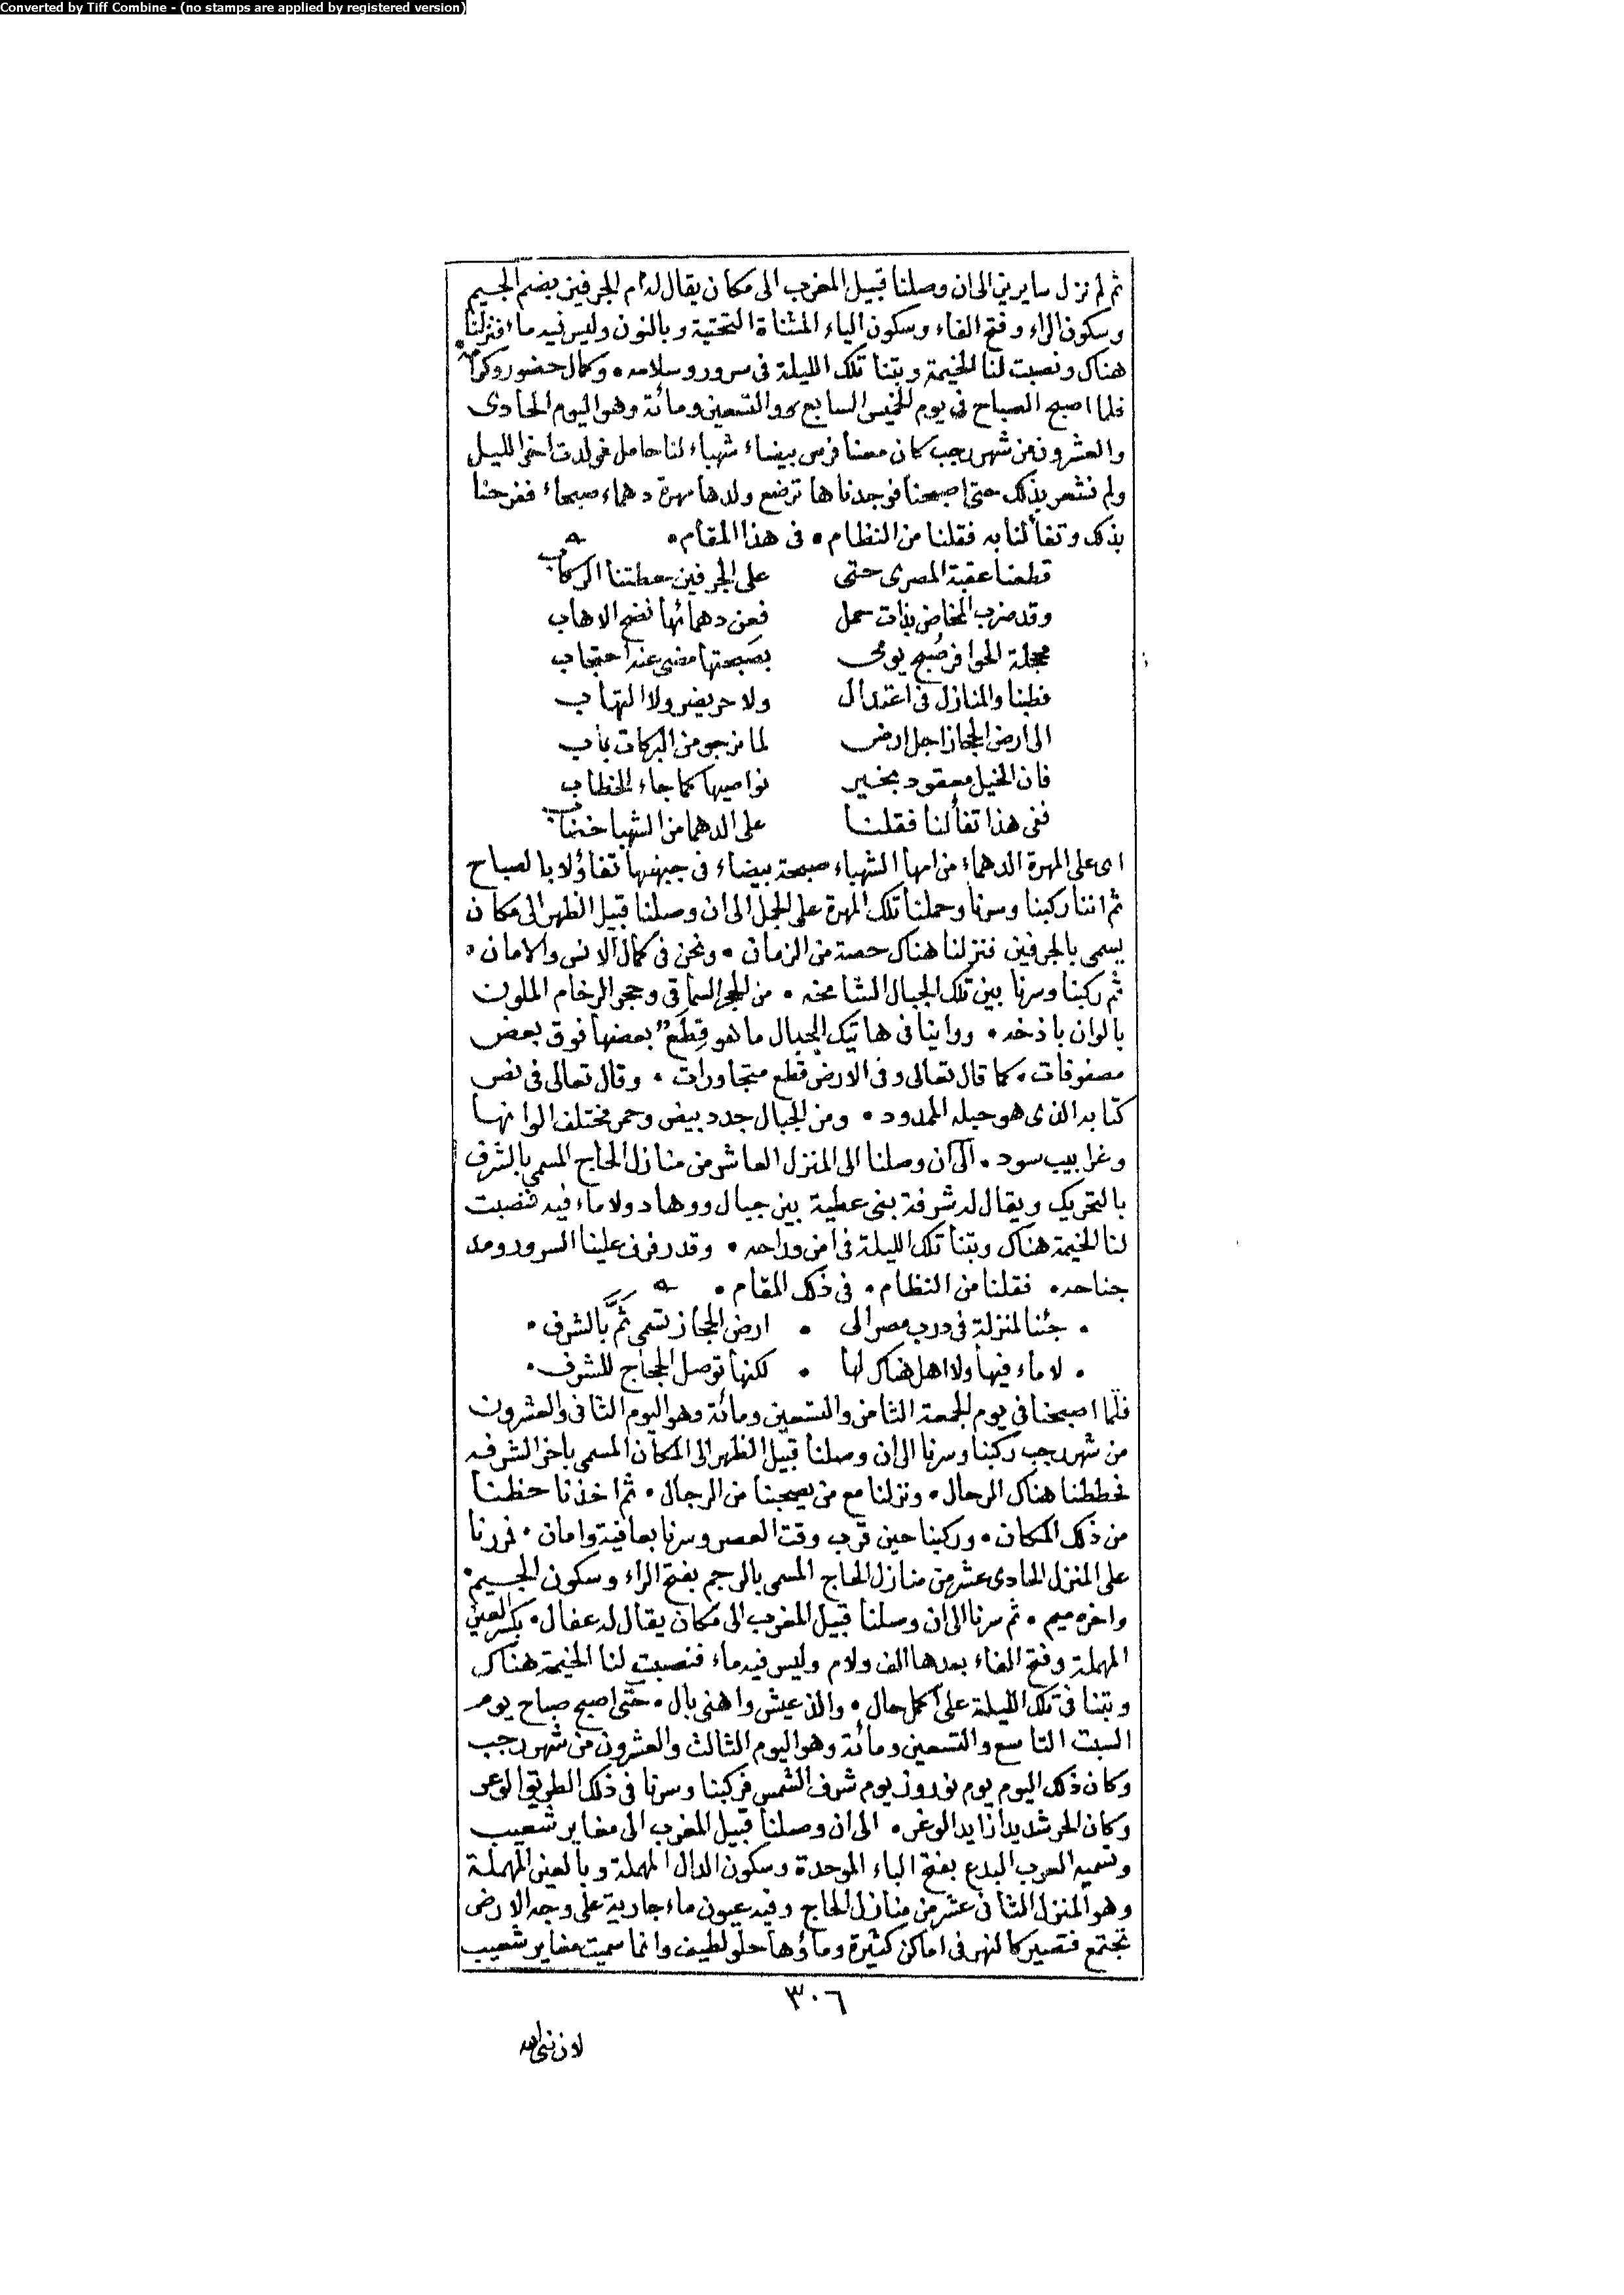 Converted by Tiff Combine - (no stamps are applied by registered version)
ثم لم نزل سايرين الى ان وصلنا قبيل المغرب الى مكان يقال له ام الجرفين بضم الجيم
وسكون الراء وفتح الفاء وسكون الياء المثناة التحتية وبالنون وليس فيه ماء فنزلنا
هناك ونصبت لنا الخيمة وبتنا تلك الليلة فى سرور وسلامه • وكمال حضور وكرامه •
فلما اصبح الصباح فى يوم الخميس السابع والتسعين ومائة وهو اليوم الحادى
والعشرون من شهر رجب كان معنا فرس بيضاء شهباء لنا حامل فولدت اخر الليل
ولم نشعر بذلك حتى اصبحنا فوجدناها ترضع ولدها مهرة دهماء صبحاء ففرحنا
بذلك وتفألنا به فقلنا من النظام • فى هذا المقام •
قطعنا عقبة المصرى حتى على الجرفين حطتنا الركاب
وقد ضرب المخاض بذات حمل فعن دهمائها نضح الاهاب
محجلة الحوافر صبح يومى بصبحتها مضى عند احتجاب
فطبنا والمنازل فى اعتدال ولا حر يضر ولا التهاب
الى ارض الحجاز اجل ارض لما نرجو من البركات باب
فان الخيل معقود بخير نواصيها كما جاء الخطاب
ففى هذا تفألنا فقلنا على الدهما من الشهبا
اى على المهرة الدهماء من امها الشهباء صبحة بيضاء فى جبهتها تفاؤلا بالصباح
ثم اننا ركبنا وسرنا وحملنا تلك المهرة على الجمل الى ان وصلنا قبيل الظهر الى مكان
يسمى بالجرفين فنزلنا هناك حصة من الزمان • ونحن فى كمال الانس والامان •
ثم ركبنا وسرنا بين تلك الجبال الشامخه • من الحجر السماقى وحجر الرخام الملون
بالوان باذخه • وراينا فى هاتيك الجبال ما هو قِطَعٌ بعضها فوق بعض
مصفوفات • كما قال تعالى وفى الارض قطع متجاورات • وقال تعالى فى نص
كتابه الذى هو حبله الممدود • ومن الجبال جدد بيض وحمر مختلف الوانها
وغرابيب سود • الى ان وصلنا الى المنزل العاشر من منازل الحاج المسمى بالشرف
بالتحريك ويقال له شرفة بنى عطية بين جبال ووهاد ولا ماء فيه فنصبت
لنا الخيمة هناك وبتنا تلك الليلة فى امن وراحه • وقد رفرف علينا السرور ومد
جناحه • فقلنا من النظام • فى ذلك المقام •
• جئنا لمنزلة فى درب مصر الى • ارض الحجاز تسمى ثَمَّ بالشرف •
• لا ماء فيها ولا اهل هناك لها • لكنها توصل الحجاج للشرف •
فلما اصبحنا فى يوم الجمعة الثامن والتسعين ومائة وهو اليوم الثانى والعشرون
من شهر رجب ركبنا وسرنا الى ان وصلنا قبيل الظهر الى المكان المسمى باخر الشرفه
فحططنا هناك الرحال • ونزلنا مع من يصحبنا من الرجال • ثم اخذنا حظنا
من ذلك المكان • وركبنا حين قرب وقت العصر وسرنا بعافية وامان • فمررنا
على المنزل الحادى عشر من منازل الحاج المسمى بالرجم بفتح الراء وسكون الجيم •
واخره ميم • ثم سرنا الى ان وصلنا قبيل المغرب الى مكان يقال له عفال • بكسر العين
المهملة وفتح الفاء بعدها الف ولام وليس فيه ماء فنصبت لنا الخيمة هناك
وبتنا فى تلك الليلة على اكمل حال • والذ عيش واهنى بال • حتى اصبح صباح يوم
السبت التاسع والتسعين ومائة وهو اليوم الثالث والعشرون من شهر رجب
وكان ذلك اليوم يوم نوروز يوم شرف الشمس فركبنا وسرنا فى ذلك الطريق الوعر
وكان الحر شديدا زايد الوغر • الى ان وصلنا قبيل المغرب الى مغاير شعيب
وتسميه العرب البدع بفتح الباء الموحدة وسكون الدال المهملة وبالعين المهملة
وهو المنزل الثانى عشر من منازل الحاج وفيه عيون ماء جارية على وجه الارض
تجتمع فتصير كالنهر فى اماكن كثيرة وماؤها حلو لطيف وانما سميت مغاير شعيب
٣٠٦
لان نبى الله